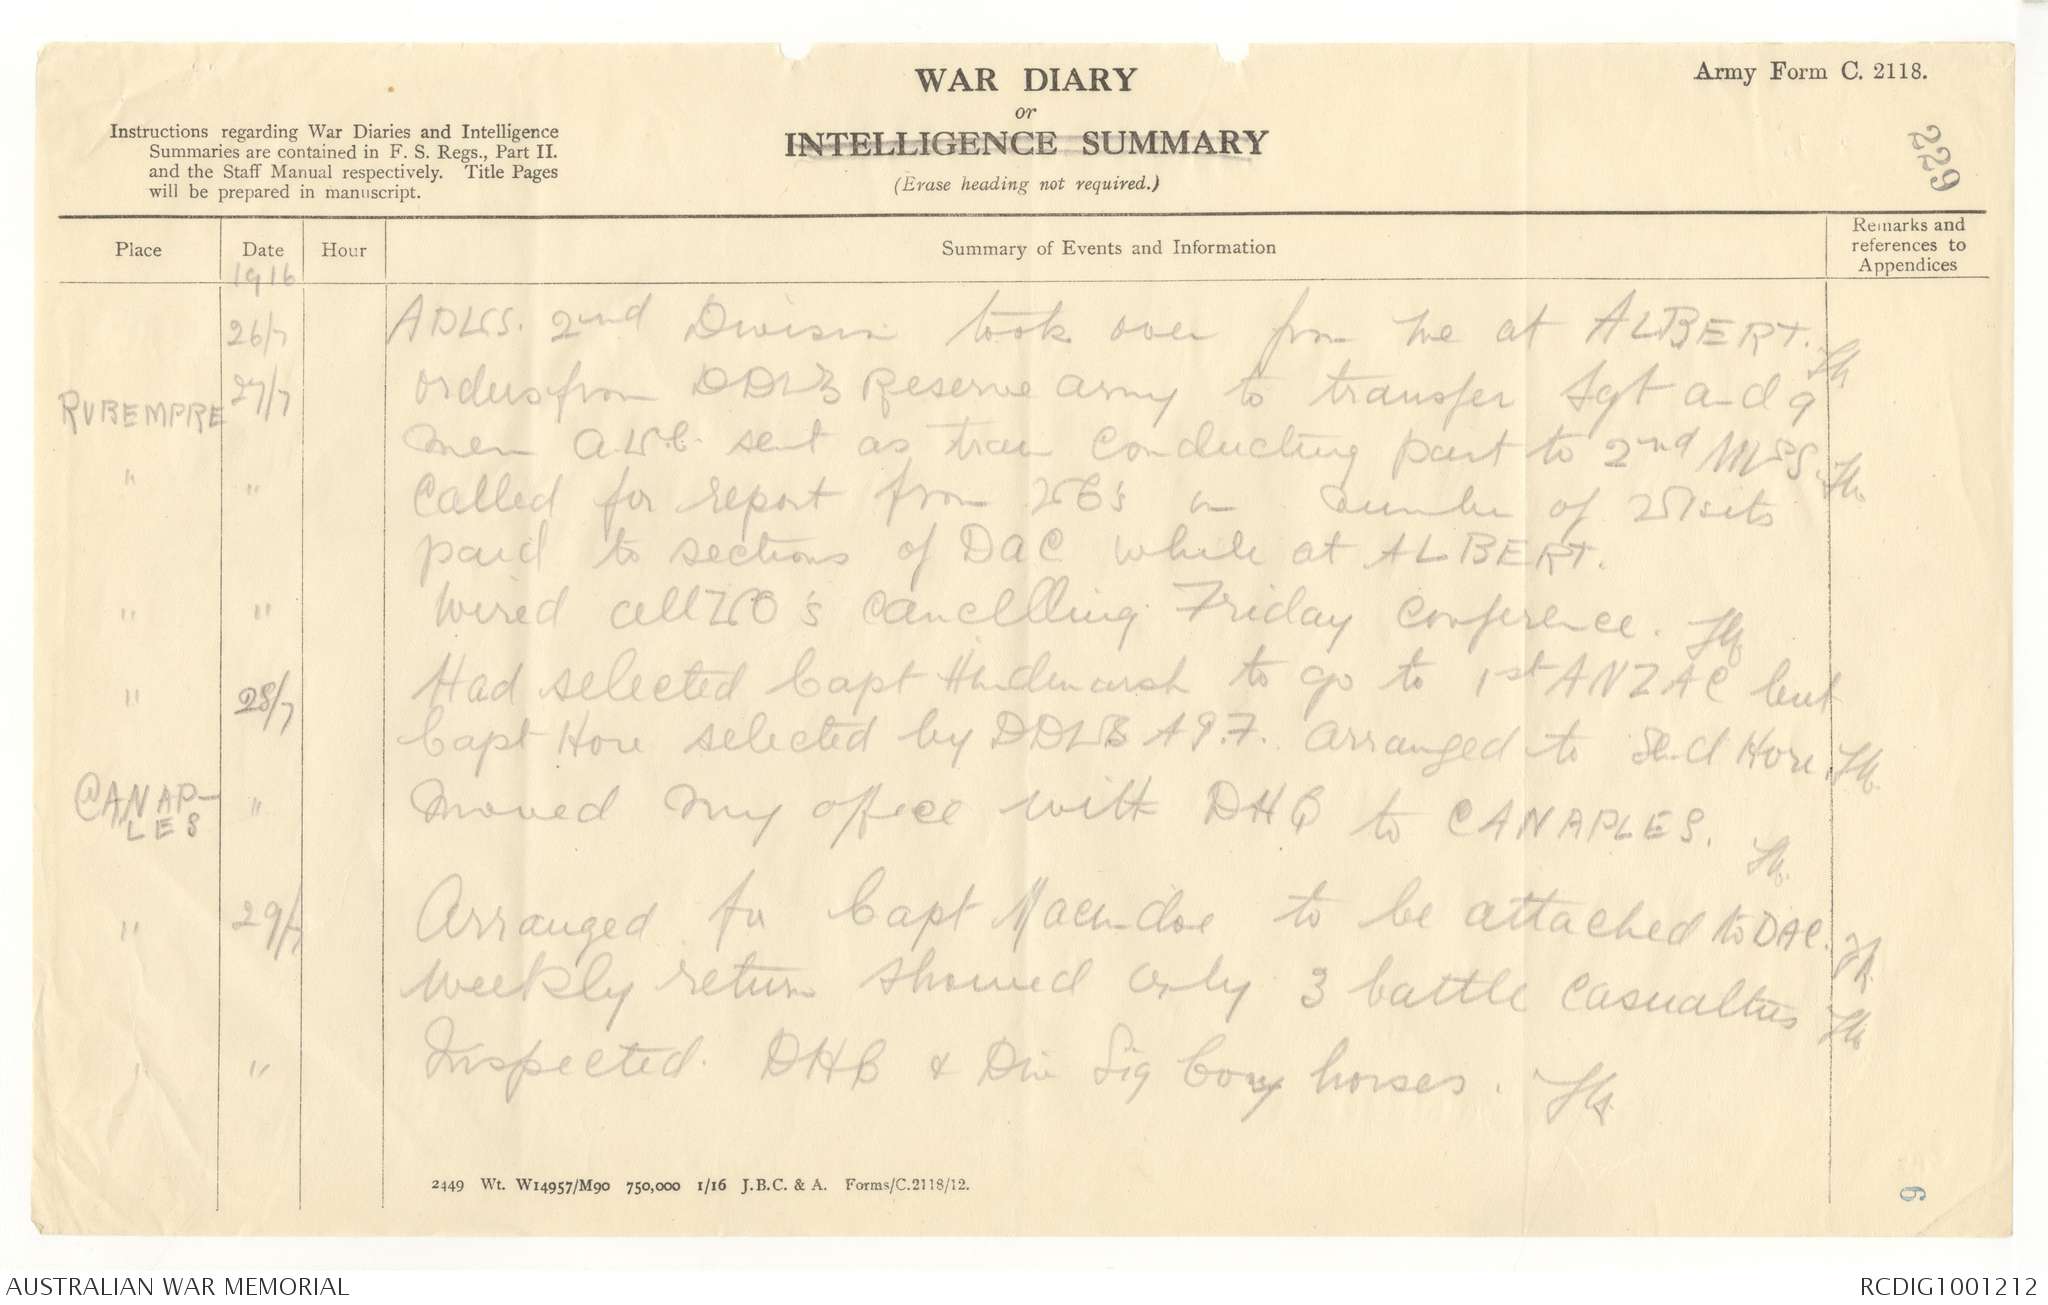 WAR DIARY
or
INTELLIGENCE SUMMARY
(Erase heading not required.)
Army Form C. 2118.
Instructions regarding War Diaries and Intelligence
Summaries are contained in F. S. Regs., Part II.
and the Staff Manual respectively. Title Pages
will be prepared in manuscript.
229
Place Date Hour Summary of Events and Information Remarks and references to Appendices
1916
26/7 ADVS. 2nd Division took over from me at ALBERT.
RUBEMPRE 27/7 orders from DDVS Reserve army to transfer Sgt and 9
men A.V.C. sent as train conducting part to 2nd
" " Called for report from VO's on number of visits
paid to sections of DAC while at ALBERT.
" " Wired all VO's cancelling Friday conference.
" 28/7 Had selected Capt Hindmarsh to go to 1st ANZAC but
Capt Hore selected by DDVS A.I.F. arranged to send Hore.
CANAP-
LES " moved my office with DHQ to CANAPLES.
" 29/7 Arranged for Capt to be attached to DAC.
Weekly return showed only 3 battle casualties
" " Inspected DHQ & Div Sig Coy horses.
2449 Wt. W14957/M90 750,000 1/16 J.B.C. & A. Forms/C.2118/12.
9
AUSTRALIAN WAR MEMORIAL
RCDIG1001212